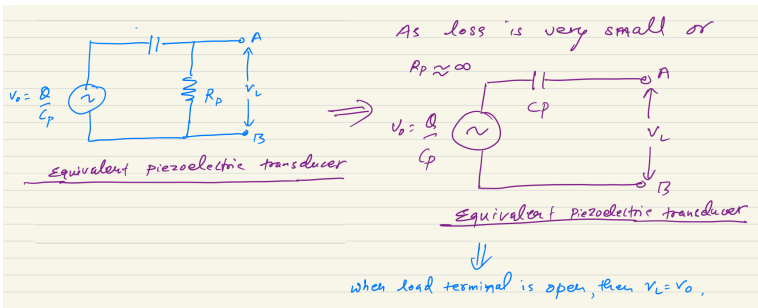 A
V₀ = Q/Cp
~
Rp
VL
B
Equivalent piezoelectric transducer
⇒
As loss is very small or
Rp ≈ ∞
A
Cp
V₀ = Q/Cp
~
VL
B
Equivalent Piezoelectric transducer
⇓
when load terminal is open, then VL = V₀.